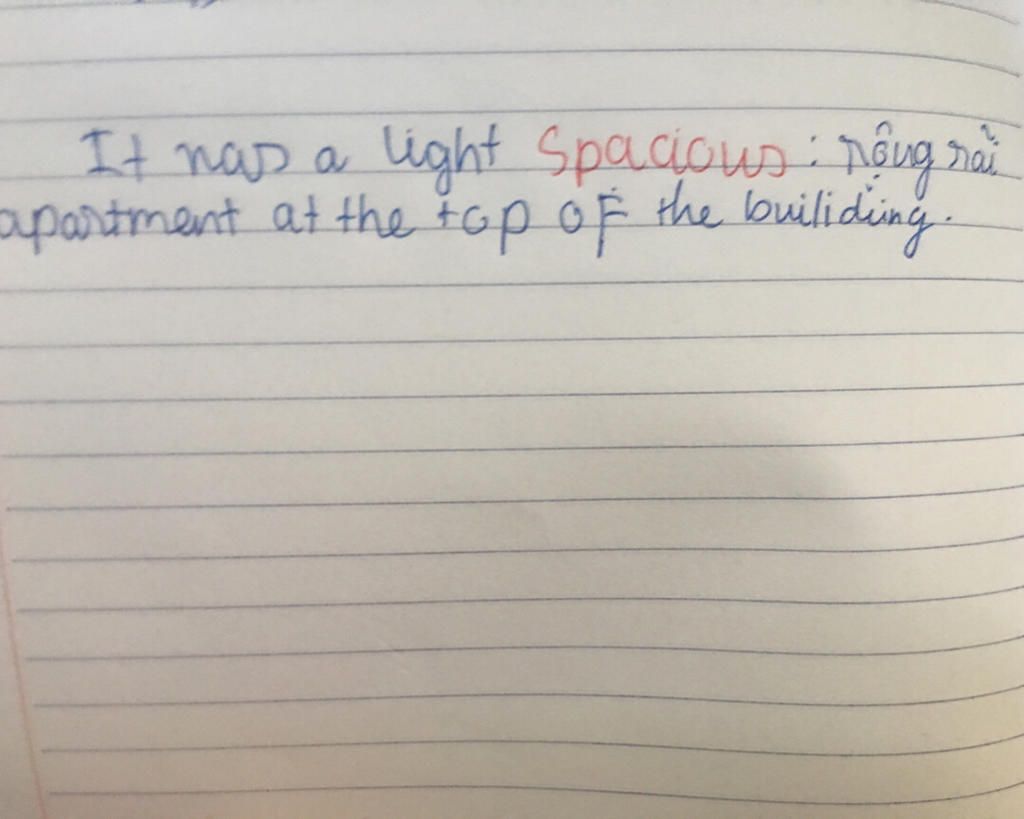 It was a light Spacious: rộng rải
apartment at the top of the builiding.